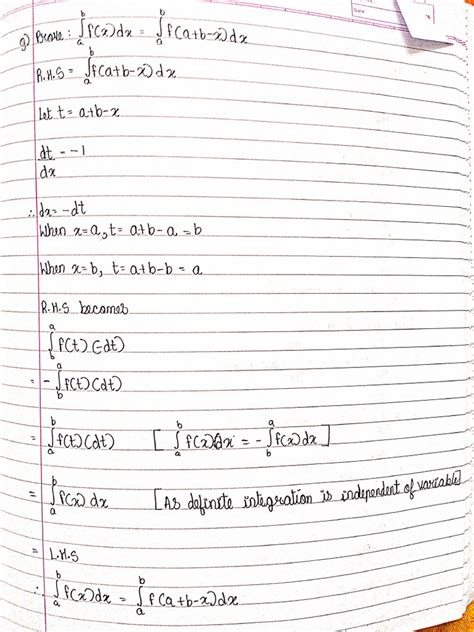 g) Prove: ∫ₐᵇ f(x)dx = ∫ₐᵇ f(a+b-x)dx
R.H.S = ∫ₐᵇ f(a+b-x)dx
Let t = a+b-x
dt/dx = -1
∴ dx = -dt
When x=a, t= a+b-a = b
When x=b, t= a+b-b = a
R.H.S becomes
∫_b^a f(t) (-dt)
= -∫_b^a f(t) (dt)
= ∫ₐᵇ f(t) (dt) [∫ₐᵇ f(x)dx = -∫_b^a f(x)dx]
= ∫ₐᵇ f(x) dx [As definite integration is independent of variable]
= L.H.S
∴ ∫ₐᵇ f(x)dx = ∫ₐᵇ f(a+b-x)dx